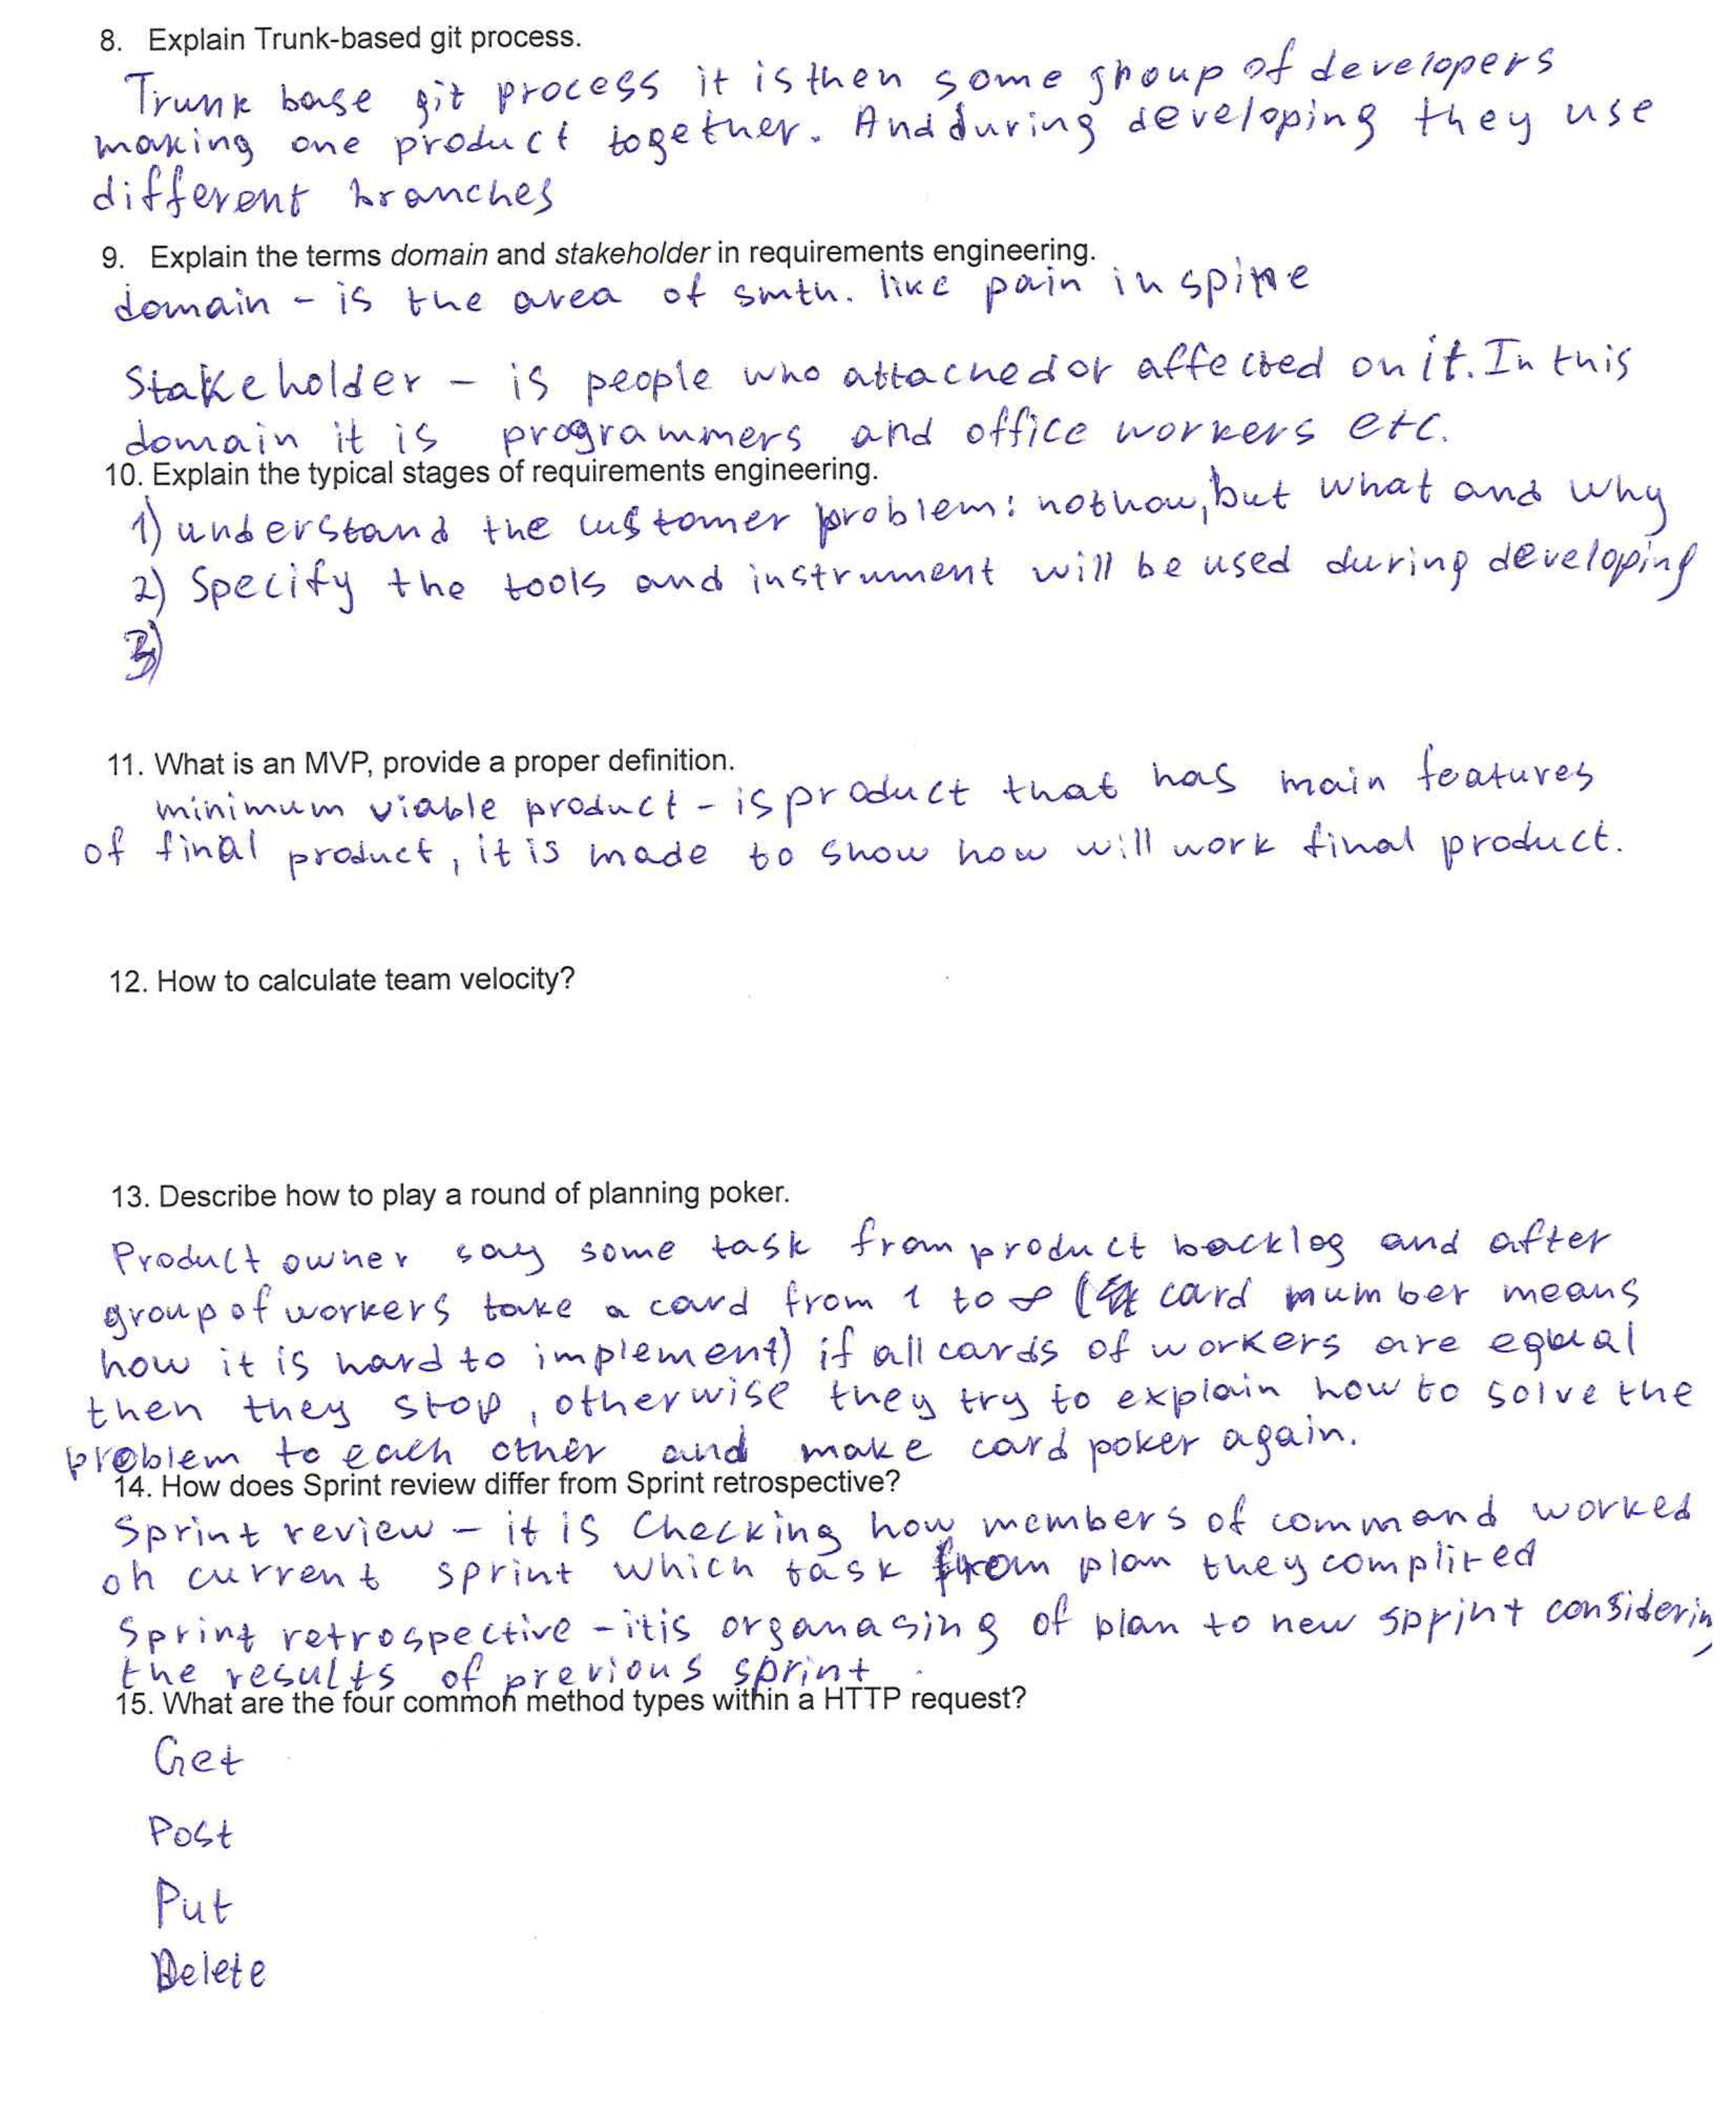 8. Explain Trunk-based git process.
Trunk base git process it is then some group of developers
making one product together. And during developing they use
different branches
9. Explain the terms domain and stakeholder in requirements engineering.
domain - is the area of smth. like pain in spine
Stakeholder - is people who attached or affected on it. In this
domain it is programmers and office workers etc.
10. Explain the typical stages of requirements engineering.
1) understand the customer problem: not how, but what and why
2) Specify the tools and instrument will be used during developing
3)
11. What is an MVP, provide a proper definition.
minimum viable product - is product that has main features
of final product, it is made to show how will work final product.
12. How to calculate team velocity?
13. Describe how to play a round of planning poker.
Product owner say some task from product backlog and after
group of workers take a card from 1 to ∞ ( card number means
how it is hard to implement) if all cards of workers are equal
then they stop, otherwise they try to explain how to solve the
problem to each other and make card poker again.
14. How does Sprint review differ from Sprint retrospective?
Sprint review - it is Checking how members of command worked
on current sprint which task from plan they complited
Sprint retrospective - it is organasing of plan to new sprint considering
the results of previous sprint.
15. What are the four common method types within a HTTP request?
Get
Post
Put
Delete